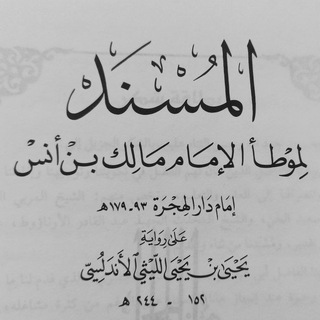 المُسْنَد
لِمُوَطَّأ الإمَام مَالِك بْنِ أنَسْ
إمَام دَار الهِجْرَة ٩٣-١٧٩هـ
عَلى رِوَايَة
يَحْيَى بْن يَحْيَى اللَّيْثِيّ الأَندَلُسِيّ
١٥٢ - ٢٤٤ هـ